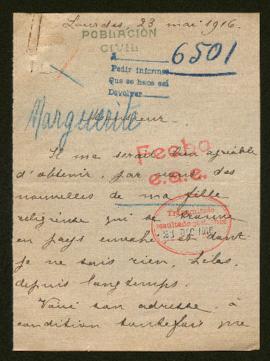 Lourdes, 23 mai 1916.
POBLACIÓN
CIVIL
A
6501
Pedir informes
Que se hace así
Devolver
Marguerite
Monsieur,
Il me serait bien agréable
Fecho
d'obtenir, par vous, des
e.a.e.
nouvelles de ma fille
religieuse qui se trouve
en pays envahi et dont
je ne sais rien, hélas,
depuis longtemps.
Voici son adresse à
condition toutefois que